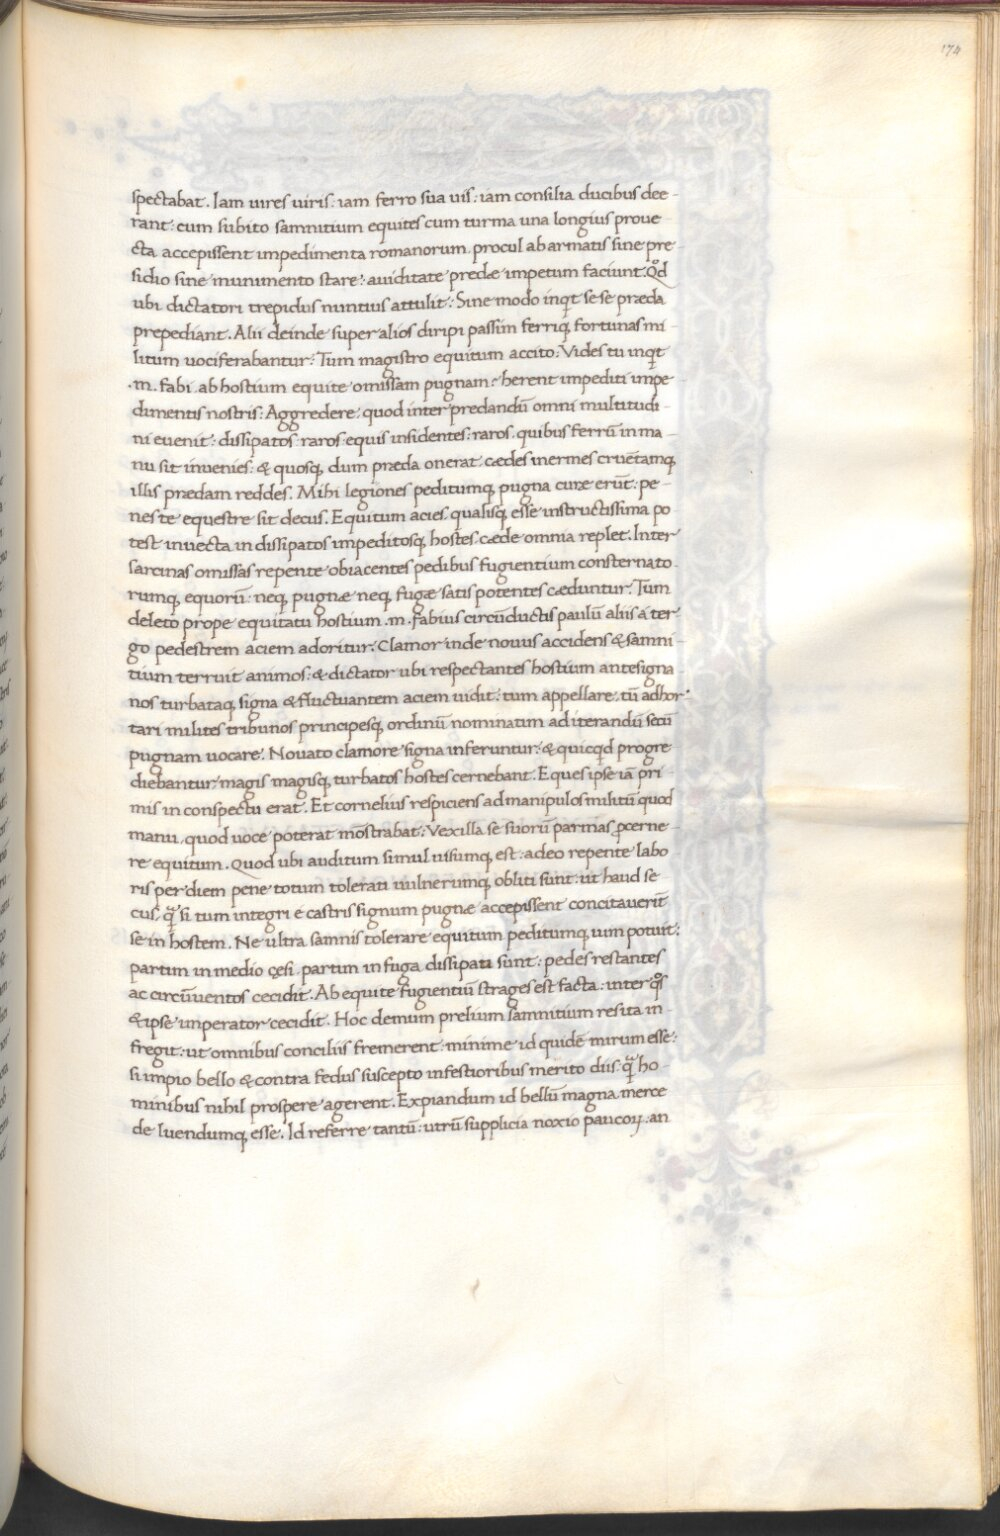 174
spectabat. Iam uires uiris: iam ferro sua uis: iam consilia ducibus dee-
rant: cum subito samnitium equites cum turma una longius proue
cta accepissent impedimenta romanorum procul ab armatis sine pre-
sidio sine munimento stare: auiditate predæ impetum faciunt: Qd̊
ubi dictatori trepidus nuntius attulit: Sine modo inqt sese præda
prepediant. Alii deinde super alios diripi passim ferriq; fortunas mi-
litum uociferabantur: Tum magistro equitum accito: Vides tu inqt
.m. fabi ab hostium equite omissam pugnam: herent impediti impe
dimentis nostris: Aggredere: quod inter predandū omni multitudi-
ni euenit: dissipatos: raros equis insidentes: raros quibus ferrū in ma-
nu sit inuenies: & quosq; dum præda onerat cædes inermes cruētamq;
illis prædam reddes. Mihi legiones peditumq; pugna curæ erūt: pe-
nes te equestre sit decus. Equitum acies qualisq; esse instructissima po
test inuecta in dissipatos impeditosq; hostes cæde omnia replet. Inter
sarcinas omissas repente obiacentes pedibus fugientium consternato
rumq; equorū: neq; pugnæ neq; fugæ satis potentes cæduntur: Tum
deleto prope equitatu hostium .m. fabius circūductis paulū aliis a ter-
go pedestrem aciem adoritur: Clamor inde nouus accidens & samni-
tium terruit animos: & dictator ubi respectantes hostium antesigna
nos turbataq; signa & fluctuantem aciem uidit: tum appellare: tū adhor
tari milites tribunos principesq; ordinū nominatim ad iterandū secū
pugnam uocare. Nouato clamore signa inferuntur: & quicqd progre
diebantur magis magisq; turbatos hostes cernebant. Eques ipse iā pri-
mis in conspectu erat. Et cornelius respiciens ad manipulos militū quod
manu. quod uoce poterat mōstrabat: Vexilla se suorū parmas pcerne-
re equitum. Quod ubi auditum simul uisumq; est: adeo repente labo
ris per diem pene totum tolerati uulnerumq; obliti sunt: ut haud se
cus q̃ si tum integri e castris signum pugnæ accepissent concitauerīt
se in hostem. Ne ultra samnis tolerare equitum peditumq; uim potuit:
partim in medio çesi. partim in fuga dissipati sunt: pedes restantes
ac circūuentos cecidit. Ab equite fugientiū strages est facta: inter qo̊s
& ipse imperator cecidit. Hoc demum prelium samnitium res ita in-
fregit: ut omnibus conciliis fremerent: minime id quidē mirum esse:
si impio bello & contra fedus suscepto infestioribus merito diis q̃ ho-
minibus nihil prospere agerent. Expiandum id bellū magna merce
de luendumq; esse. Id referre tantū: utrū supplicia noxio paucoꝝ. an